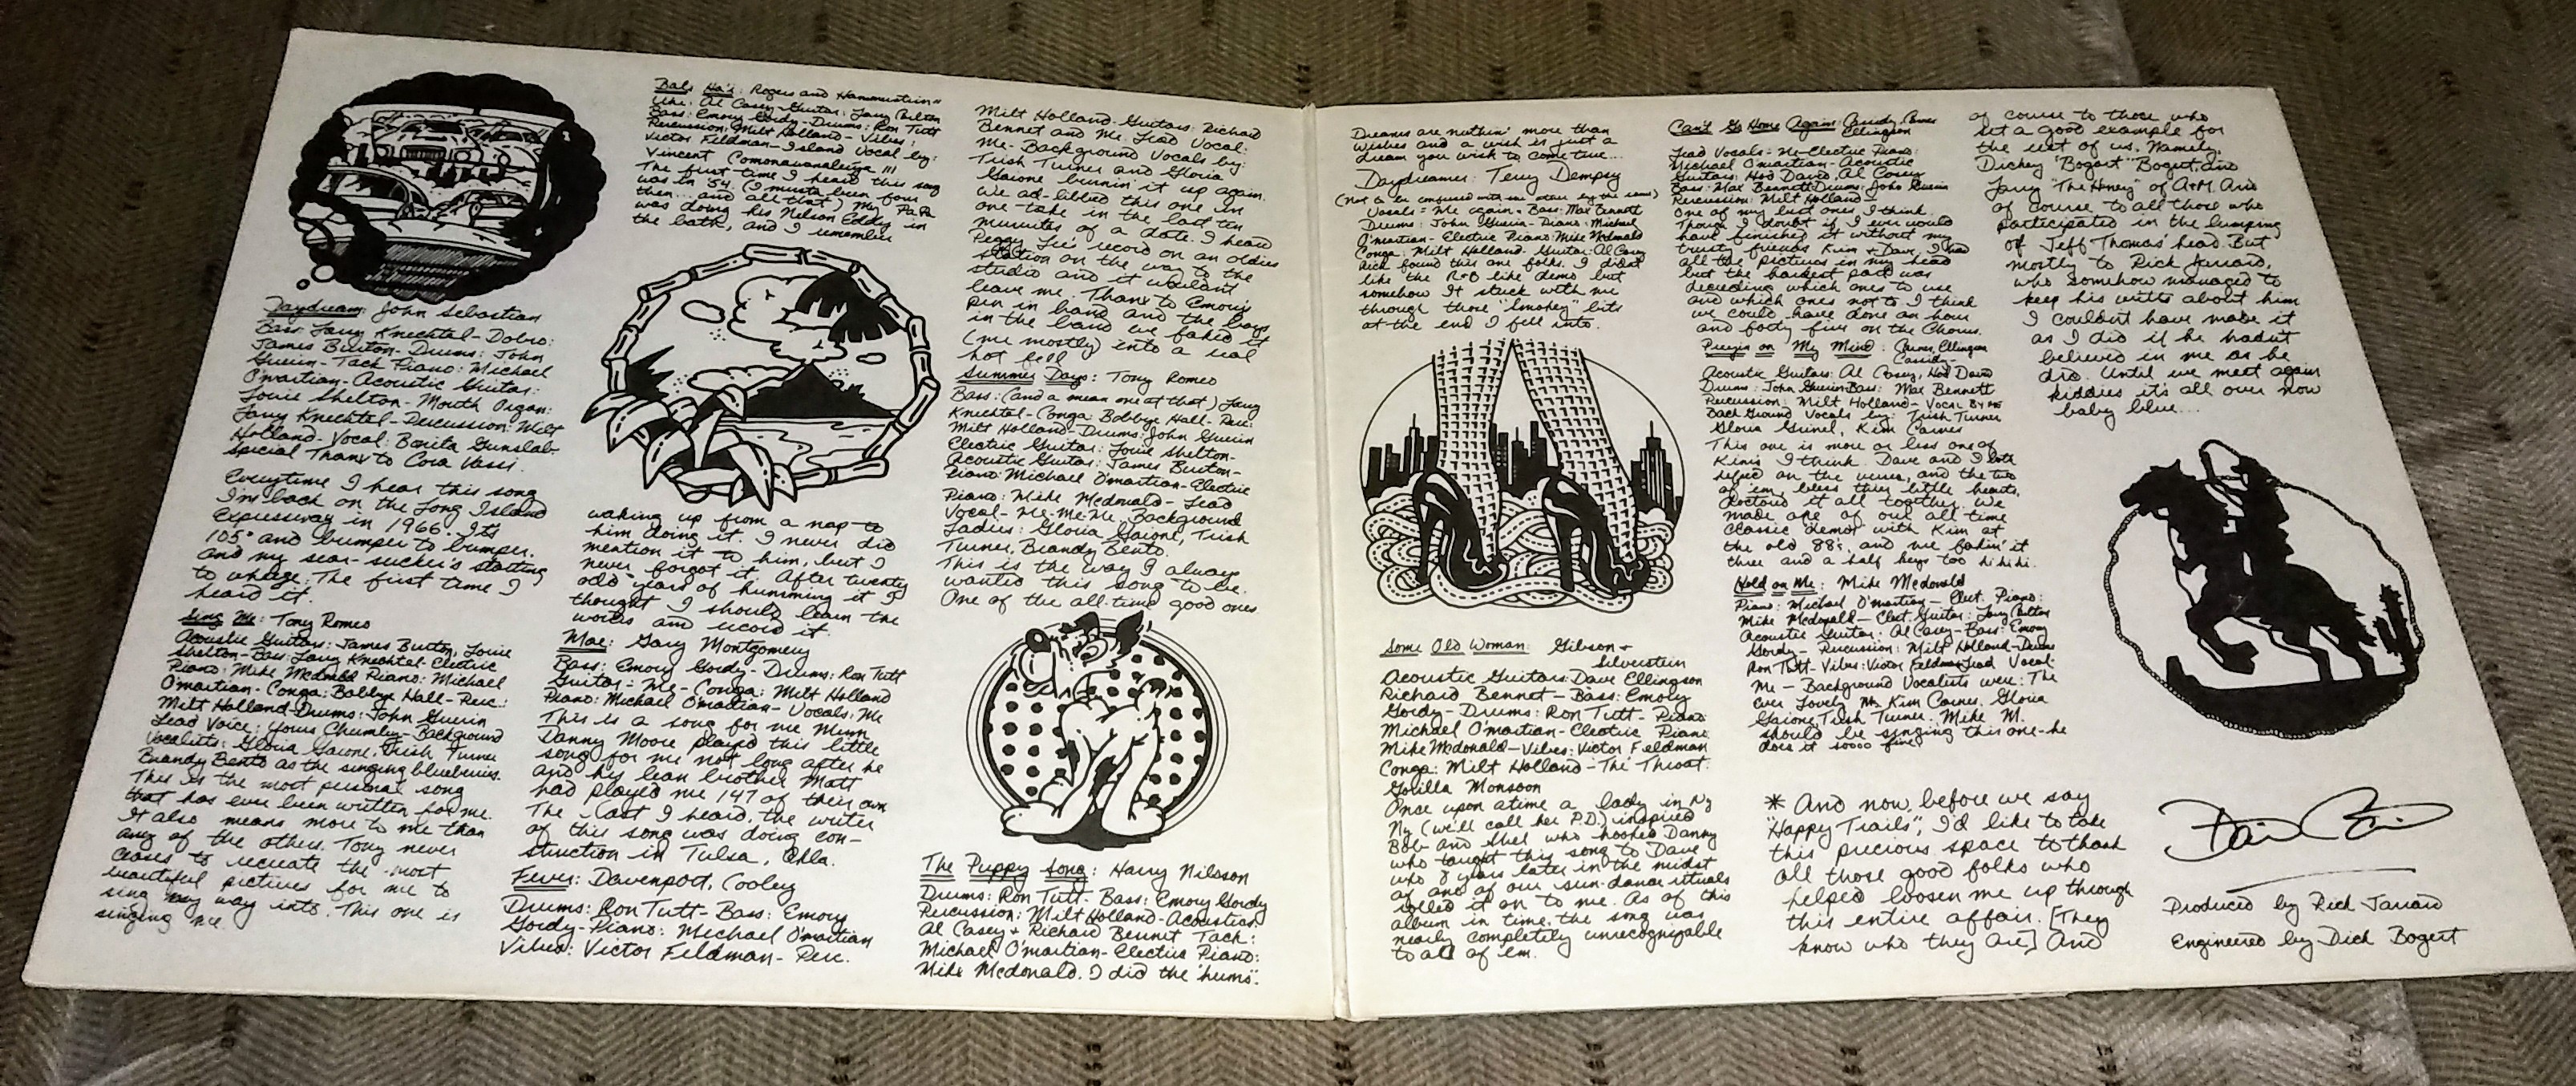 Daydream: John Sebastian
Bass: Larry Knechtel- Dobro:
James Burton- Drums: John
Guerin- Tack Piano: Michael
O'martian- Acoustic Guitar:
Louie Shelton- Mouth Organ:
Larry Knechtel- Percussion: Milt
Holland- Vocal: Bonita Gunslab-
Special Thanx to Cora Vasis.
Everytime I hear this song
I'm back on the Long Island
Expressway in 1966. It's
105° and bumper to bumper.
and my sear-sucker's starting
to wheeze. The first time I
heard it.
Sing Me: Tony Romeo
Acoustic Guitars: James Burton, Louie
Shelton- Bass: Larry Knechtel- Electric
Piano: Mike Mcdonald Piano: Michael
O'martian- Conga: Bobbye Hall- Perc.:
Milt Holland- Drums: John Guerin
Lead Voice: Yours Chumley- Background
Vocalists: Gloria Gaione, Trish Turner
Brandy Bento as the singing blueberries.
This is the most personal song
that has ever been written for me.
It also means more to me than
any of the others. Tony never
ceases to recreate the most
beautiful pictures for me to
sing my way into. This one is
singing me.
Bali Ha'i: Rogers and Hammerstein
Uke: Al Casey- Guitar: Larry Carlton
Bass: Emory Gordy- Drums: Ron Tutt
Percussion: Milt Holland- Vibes:
Victor Feldman- Island Vocal by:
Vincent !!!
The first time I heard this song
was in '54. (I musta been four
then... and all that) My PaPa
was doing his Nelson Eddy in
the bath, and I remember
waking up from a nap to
him doing it. I never did
mention it to him, but I
never forgot it. After twenty
odd years of humming it I
thought I should learn the
words and record it.
Mae: Gary Montgomery
Bass: Emory Gordy- Drums: Ron Tutt
Guitar: Me- Conga: Milt Holland
Piano: Michael O'martian- Vocals: Me
This is a song for me Mum
Danny Moore played this little
song for me not long after he
and his lean brother Matt
had played me 147 of their own
The last I heard, the writer
of this song was doing con-
struction in Tulsa, Okla.
Fever: Davenport, Cooley
Drums: Ron Tutt- Bass: Emory
Gordy- Piano: Michael O'martian
Vibes: Victor Feldman- Perc.
Milt Holland- Guitars: Richard
Bennet and Me. Lead Vocal:
Me- Background Vocals by:
Trish Turner and Gloria
Gaione burnin' it up again.
We ad-libbed this one in
one take in the last ten
munutes of a date. I heard
Peggy Lee's record on an oldies
station on the way to the
studio and it wouldn't
leave me. Thanx to Emory's
pen in hand and the boys
in the band we faked it
(me mostly) into a real
hot feel
Summer Days: Tony Romeo
Bass: (and a mean one at that) Larry
Knechtel- Conga: Bobbye Hall- Perc:
Milt Holland- Drums: John Guerin
Electric Guitar: Louie Shelton-
Acoustic Guitar: James Burton-
Piano: Michael O'martian- Electric
Piano: Mike Mcdonald- Lead
Vocal- Me-Me-Me, Background
Ladies: Gloria Gaione, Trish
Turner, Brandy Bento.
This is the way I always
wanted this song to be.
One of the all-time good ones
The Puppy Song: Harry Nilsson
Drums: Ron Tutt- Bass: Emory Gordy
Percussion: Milt Holland- Acoustics:
Al Casey + Richard Bennet Tack:
Michael O'martian- Electric Piano:
Mike Mcdonald. I did the "hums".
Dreams are nuthin' more than
wishes and a wish is just a
dream you wish to come true...
Daydreamer: Terry Dempsy
(Not to be confused with the other by the same)
Vocals = Me again- Bass: Max Bennett
Drums: John Guerin- Piano: Michael
O'martian- Electric Piano: Mike Mcdonald
Conga: Milt Holland- Guitar: Al Casey
Rick found this one folks. I didn't
like the R+B like demo but
somehow it stuck with me
through those "Smokey" bits
at the end I fell into.
Some Old Woman: Gibson +
Silverstein
Acoustic Guitars: Dave Ellingson
Richard Bennet- Bass: Emory
Gordy- Drums: Ron Tutt- Piano:
Michael O'martian- Electric Piano
Mike Mcdonald- Vibes: Victor Feldman
Conga: Milt Holland- The Throat:
Gorilla Monsoon
Once upon atime a lady in Ny
Ny (we'll call her P.D.) inspired
Bob and Shel who hooked Danny
who taught this song to Dave
who 8 years later in the midst
of one of our sun-dance rituals
rolled it on to me. As of this
album in time, the song was
nearly completely unrecognizable
to all of 'em.
Can't Go Home Again: Cassidy, Carnes
Ellingson
Lead Vocals- Me- Electric Piano:
Michael O'martian- Acoustic
Guitars: Hod David, Al Casey
Bass: Max Bennett Drums: John Guerin
Percussion: Milt Holland-
One of my best ones I think.
Though I doubt if I ever would
have finished it without my
trusty friends Kim + Dave. I had
all the pictures in my head
but the hardest part was
deciding which ones to use
and which ones not to. I think
we could have done an hour
and forty five on the Chorus.
Preyin on My Mind: Carnes, Ellingson
Cassidy-
Acoustic Guitars: Al Casey, Hod David
Drums: John Guerin Bass: Max Bennett
Percussion: Milt Holland- Vocal By Me
Back Ground Vocals by: Trish Turner
Gloria Grinel, Kim Carnes
This one is more or less one of
Kim's I think. Dave and I both
helped on the verses, and the two
of 'em, bless their little hearts,
doctored it all together. We
made one of our all time
classic demos with Kim at
the old 88's, and me fakin' it
three and a half keys too hi hi hi.
Hold on Me: Mike Mcdonald
Piano: Michael O'martian- Elect. Piano:
Mike Mcdonald- Elect. Guitar: Larry Carlton
Acoustic Guitar: Al Casey- Bass: Emory
Gordy- Percussion: Milt Holland- Drums
Ron Tutt- Vibes: Victor Feldman Lead Vocal:
Me- Background Vocalists were: The
Ever Lovely Ms. Kim Carnes, Gloria
Gaione, Trish Turner. Mike M.
should be singing this one- he
does it soooo fine
* And now, before we say
"Happy Trails", I'd like to take
this precious space to thank
all those good folks who
helped loosen me up through
this entire affair. [They
know who they are] And
of course to those who
set a good example for
the rest of us. Namely,
Dickey "Bogart" Bogurt and
Larry "The Honey" of A+M. And
of course to all those who
participated in the lumping
of Jeff Thomas' head. But
mostly to Rick Jarrard,
who somehow managed to
keep his witts about him
I couldn't have made it
as I did if he hadn't
believed in me as he
did. Until we meet again
kiddies it's all over now
baby blue...
Produced by Rick Jarrard
Engineered by Dick Bogert